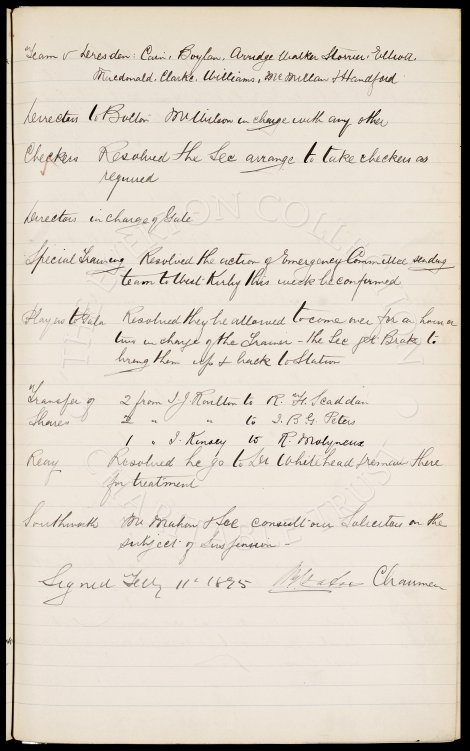 Team v Dresden: Cain, Boylan, Arridge Walker Storrier Elliott,
Macdonald, Clarke, Williams, McMillan & Handford
Directors to Bolton Mr Wilson in charge with any other
Checkers Resolved the Sec arrange to take checkers as
required
Directors in charge of Gate
Special Training Resolved the action of Emergency Committee sending
team to West Kirby this week be confirmed
Players to Gala Resolved they be allowed to come over for an hour or
two in charge of the Trainer - the Sec get Brake to
bring them up & back to Station
Transfer of 2 from J J Roulton to R. H. Scaddan
Shares 2 " " to J. B. G. Peters
1 " J. Kinsey to R. Molyneux
Reay Resolved he go to Dr Whitehead & remain there
for treatment
Southworth Mr Mahon & Sec consult our Solicitors on the
subject of Suspension -
Signed Feby 11th 1895 Chairman
THE EVERTON COLLECTION
CHARITABLE TRUST